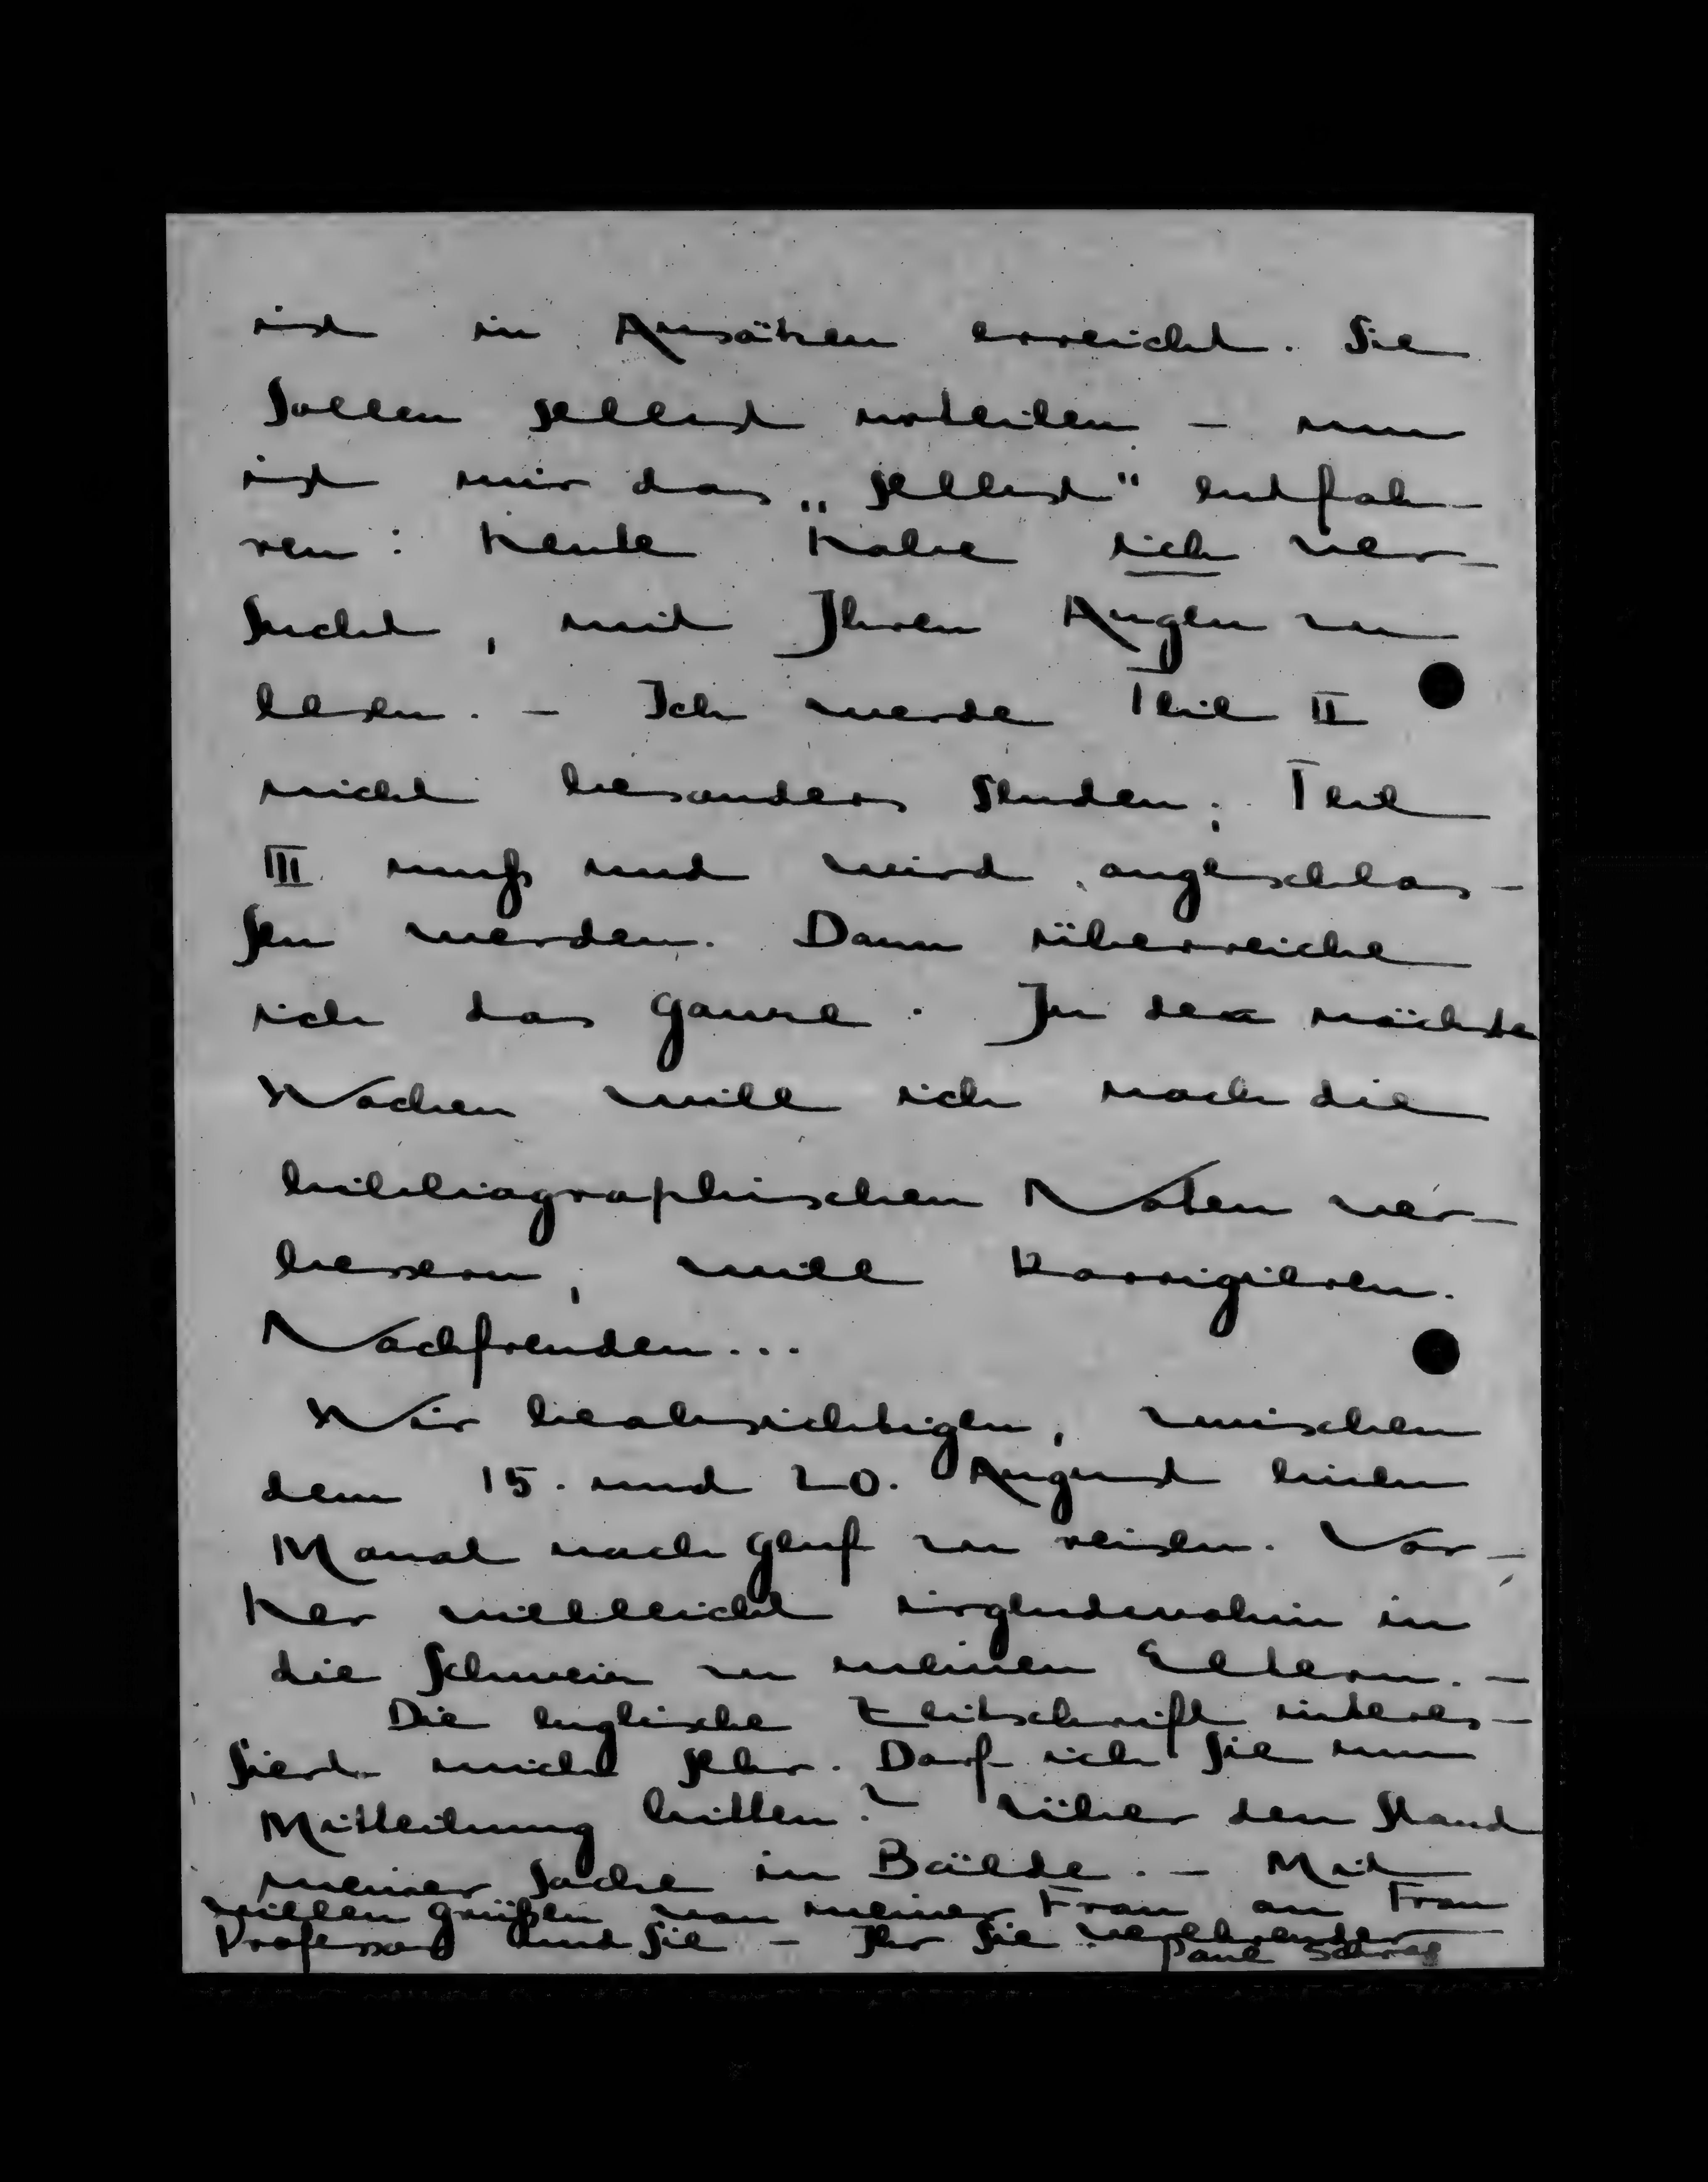 ist in Ansätzen erreicht. Sie
sollen selbst urteilen – nun
ist mir das „selbst" entfah-
ren: heute habe ich ver-
sucht, mit Ihren Augen zu
lesen. – Ich werde Teil II
nicht besonders senden; Teil
III muß und wird angeschlos-
sen werden. Dann überreiche
ich das Ganze. In den nächsten
Wochen will ich noch die
bibliographischen Noten ver-
bessern, will korrigieren.
Nachfreuden...
Wir beabsichtigen, zwischen
dem 15. und 20. August einen
Monat nach Genf zu reisen. Vor-
her vielleicht irgendwohin in
die Schweiz zu meinen Eltern. –
Die englische Zeitschrift interes-
siert mich sehr. Darf ich Sie um
Mitteilung bitten? über den Stand
meiner Sache in Bälde. – Mit
vielen Grüßen von meiner Frau an Frau
Professor und Sie – Ihr Sie verehrender
Paul